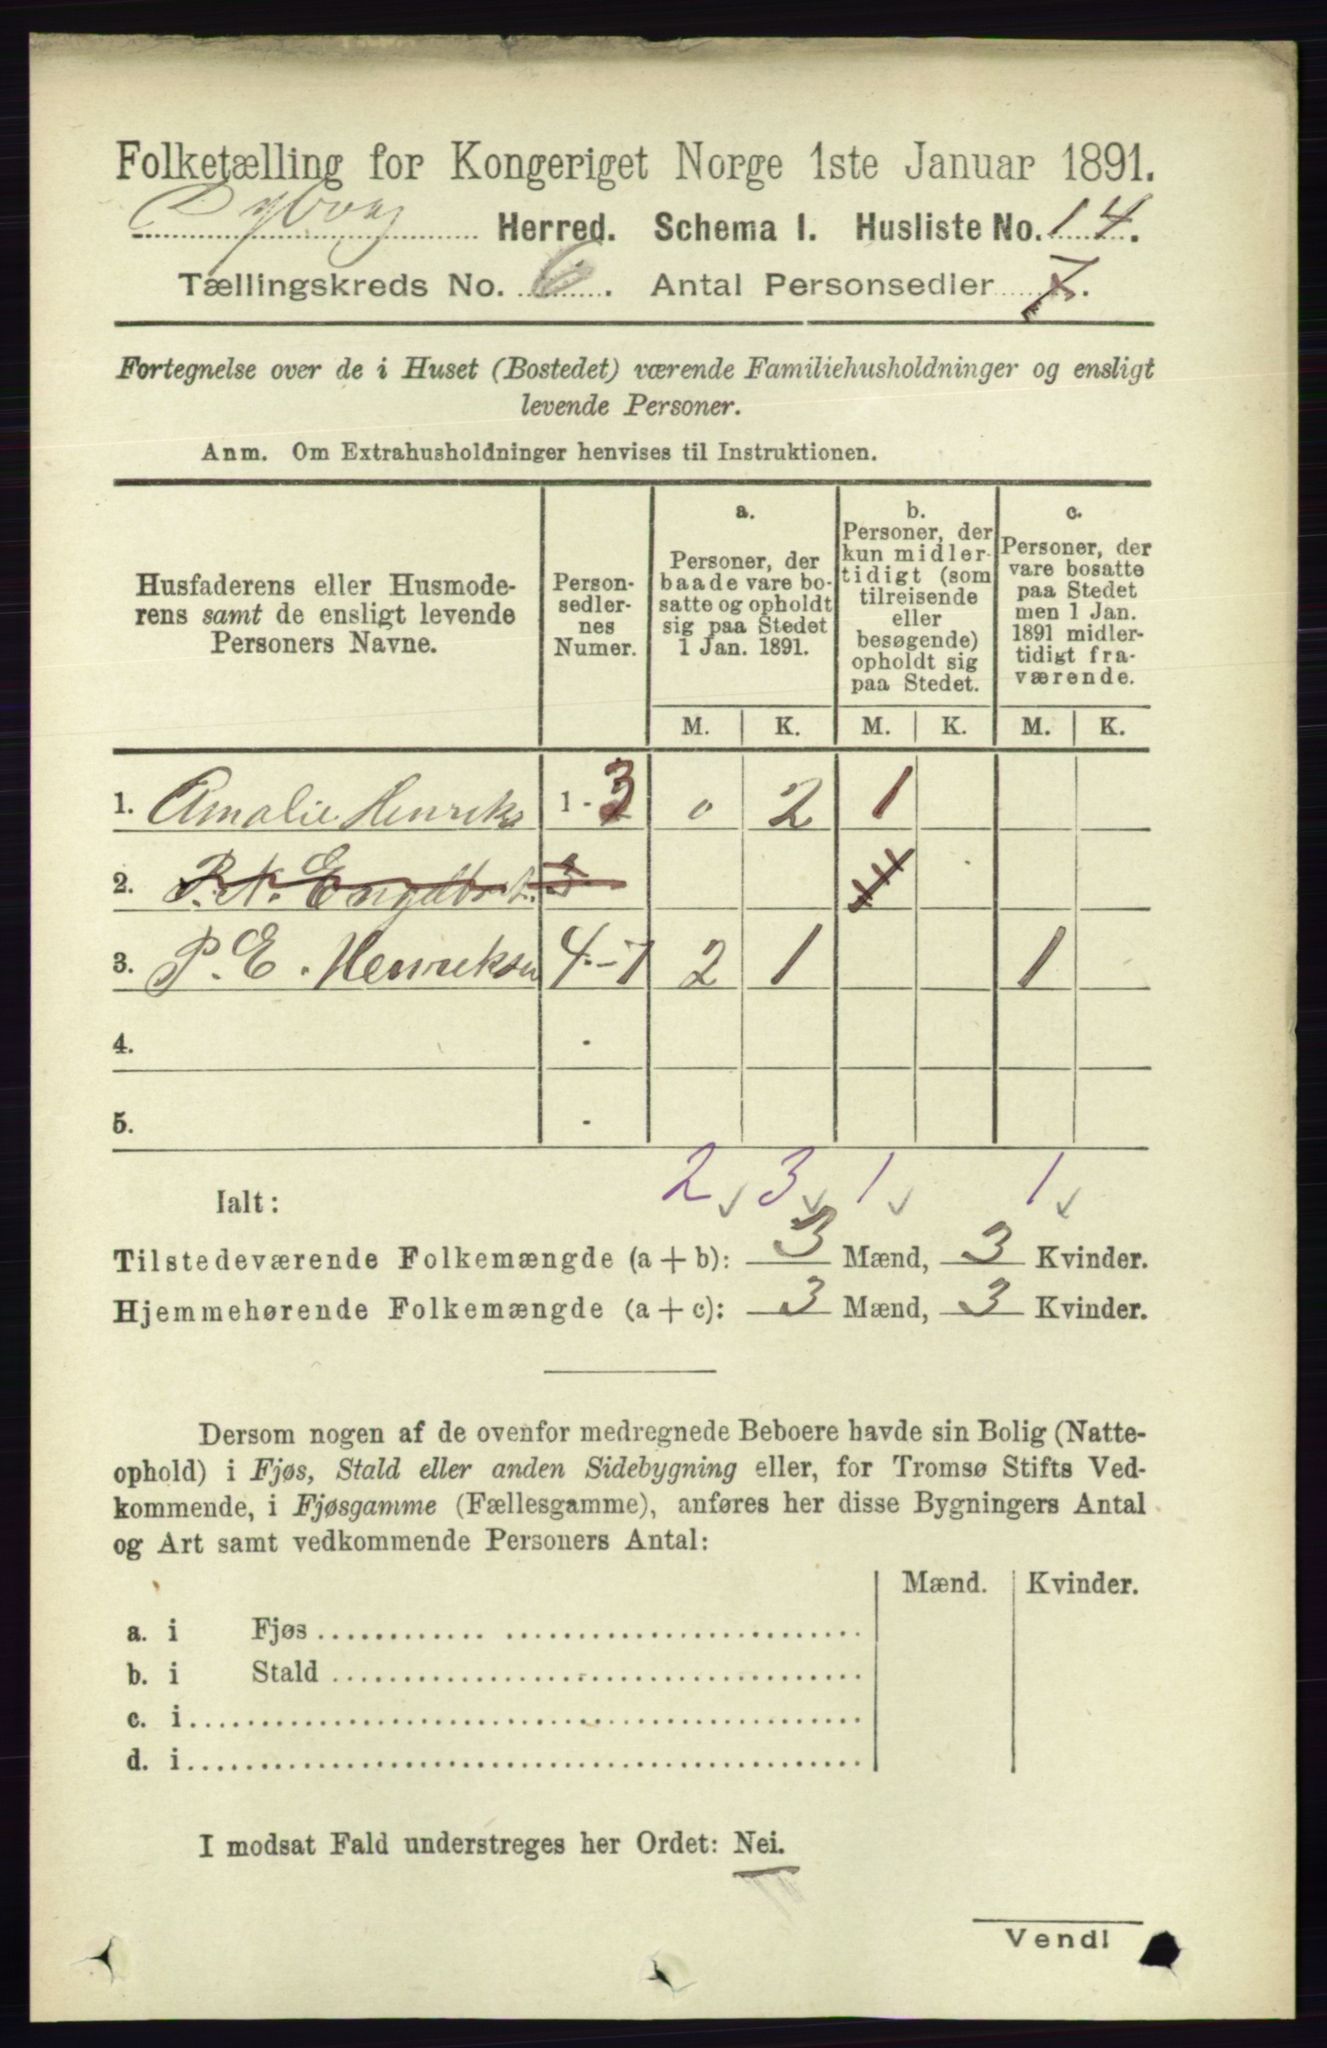 Folketælling for Kongeriget Norge 1ste Januar 1891.
Dybvaag Herred. Schema I. Husliste No. 14.
Tællingskreds No. 6. Antal Personsedler 7.
Fortegnelse over de i Huset (Bostedet) værende Familiehusholdninger og ensligt
levende Personer.
Anm. Om Extrahusholdninger henvises til Instruktionen.
Husfaderens eller Husmode-
rens samt de ensligt levende
Personers Navne.
Person-
sedler-
nes
Numer.
a.
Personer, der
baade vare bo-
satte og opholdt
sig paa Stedet
1 Jan. 1891.
b.
Personer, der
kun midler-
tidigt (som
tilreisende
eller
besøgende)
opholdt sig
paa Stedet.
c.
Personer, der
vare bosatte
paa Stedet
men 1 Jan.
1891 midler-
tidigt fra-
værende.
M. K. M. K. M. K.
1. Amalie Henriks 1-3 0 2 1
2. P. N. Engelbrt. 3
3. P. E. Henriksen 4-7 2 1 1
4. -
5. -
Ialt: 2 3 1 1
Tilstedeværende Folkemængde (a + b): 3 Mænd, 3 Kvinder.
Hjemmehørende Folkemængde (a + c): 3 Mænd, 3 Kvinder.
Dersom nogen af de ovenfor medregnede Beboere havde sin Bolig (Natte-
ophold) i Fjøs, Stald eller anden Sidebygning eller, for Tromsø Stifts Ved-
kommende, i Fjøsgamme (Fællesgamme), anføres her disse Bygningers Antal
og Art samt vedkommende Personers Antal:
Mænd. Kvinder.
a. i Fjøs
b. i Stald
c. i
d. i
I modsat Fald understreges her Ordet: Nei.
Vend!